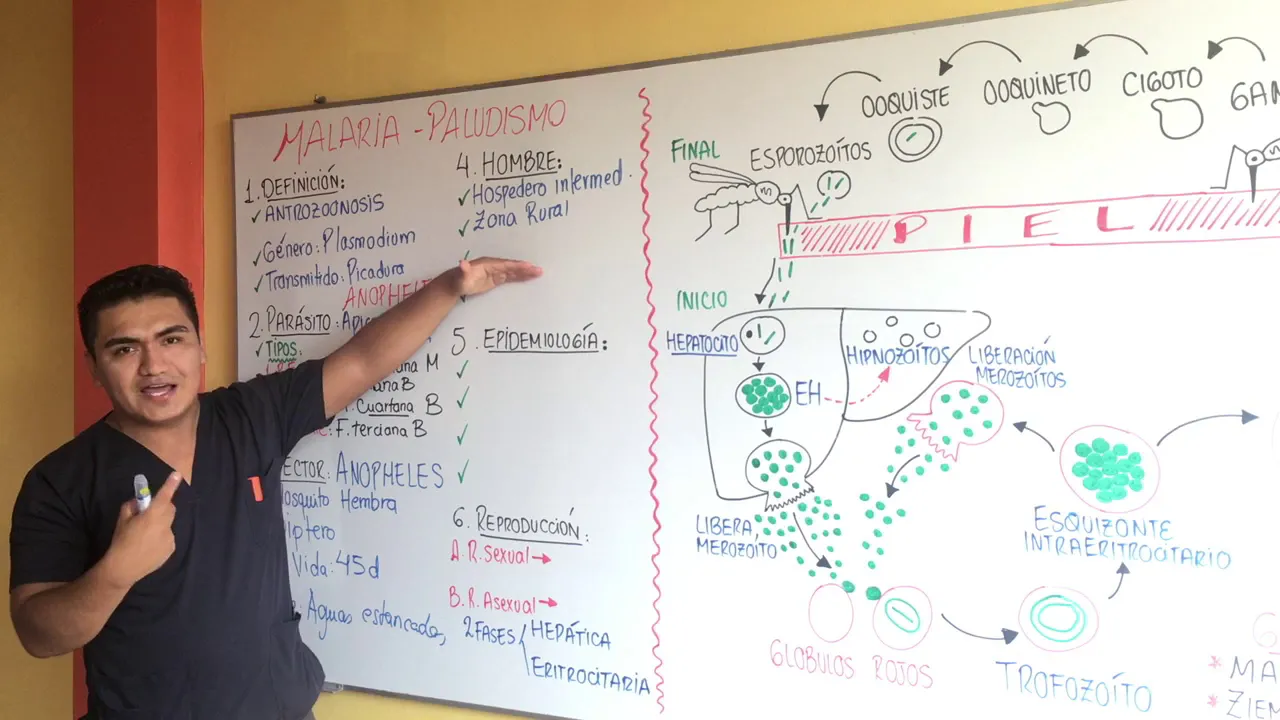 MALARIA - PALUDISMO
1. DEFINICIÓN:
✓ ANTROZOONOSIS
✓ Género: Plasmodium
✓ Transmitido: Picadura
ANOPHELE
2. PARÁSITO:
✓ TIPOS
M
B
Cuartana B
F. terciana B
ANOPHELES
Hembra
Vida: 45d
Aguas estancadas,
4. HOMBRE:
✓ Hospedero intermed.
✓ Zona Rural
✓
✓
5. EPIDEMIOLOGÍA:
✓
✓
✓
✓
6. REPRODUCCIÓN:
A. R. Sexual →
B. R. Asexual →
2 FASES HEPÁTICA
ERITROCITARIA
OOQUISTE
OOQUINETO
CIGOTO
GAM
FINAL
ESPOROZOÍTOS
PIEL
INICIO
HEPATOCITO
HIPNOZOÍTOS
LIBERACIÓN
MEROZOÍTOS
EH
LIBERA
MEROZOÍTO
ESQUIZONTE
INTRAERITROCITARIO
GLOBULOS ROJOS
TROFOZOÍTO
G
* MA
* ZIEM